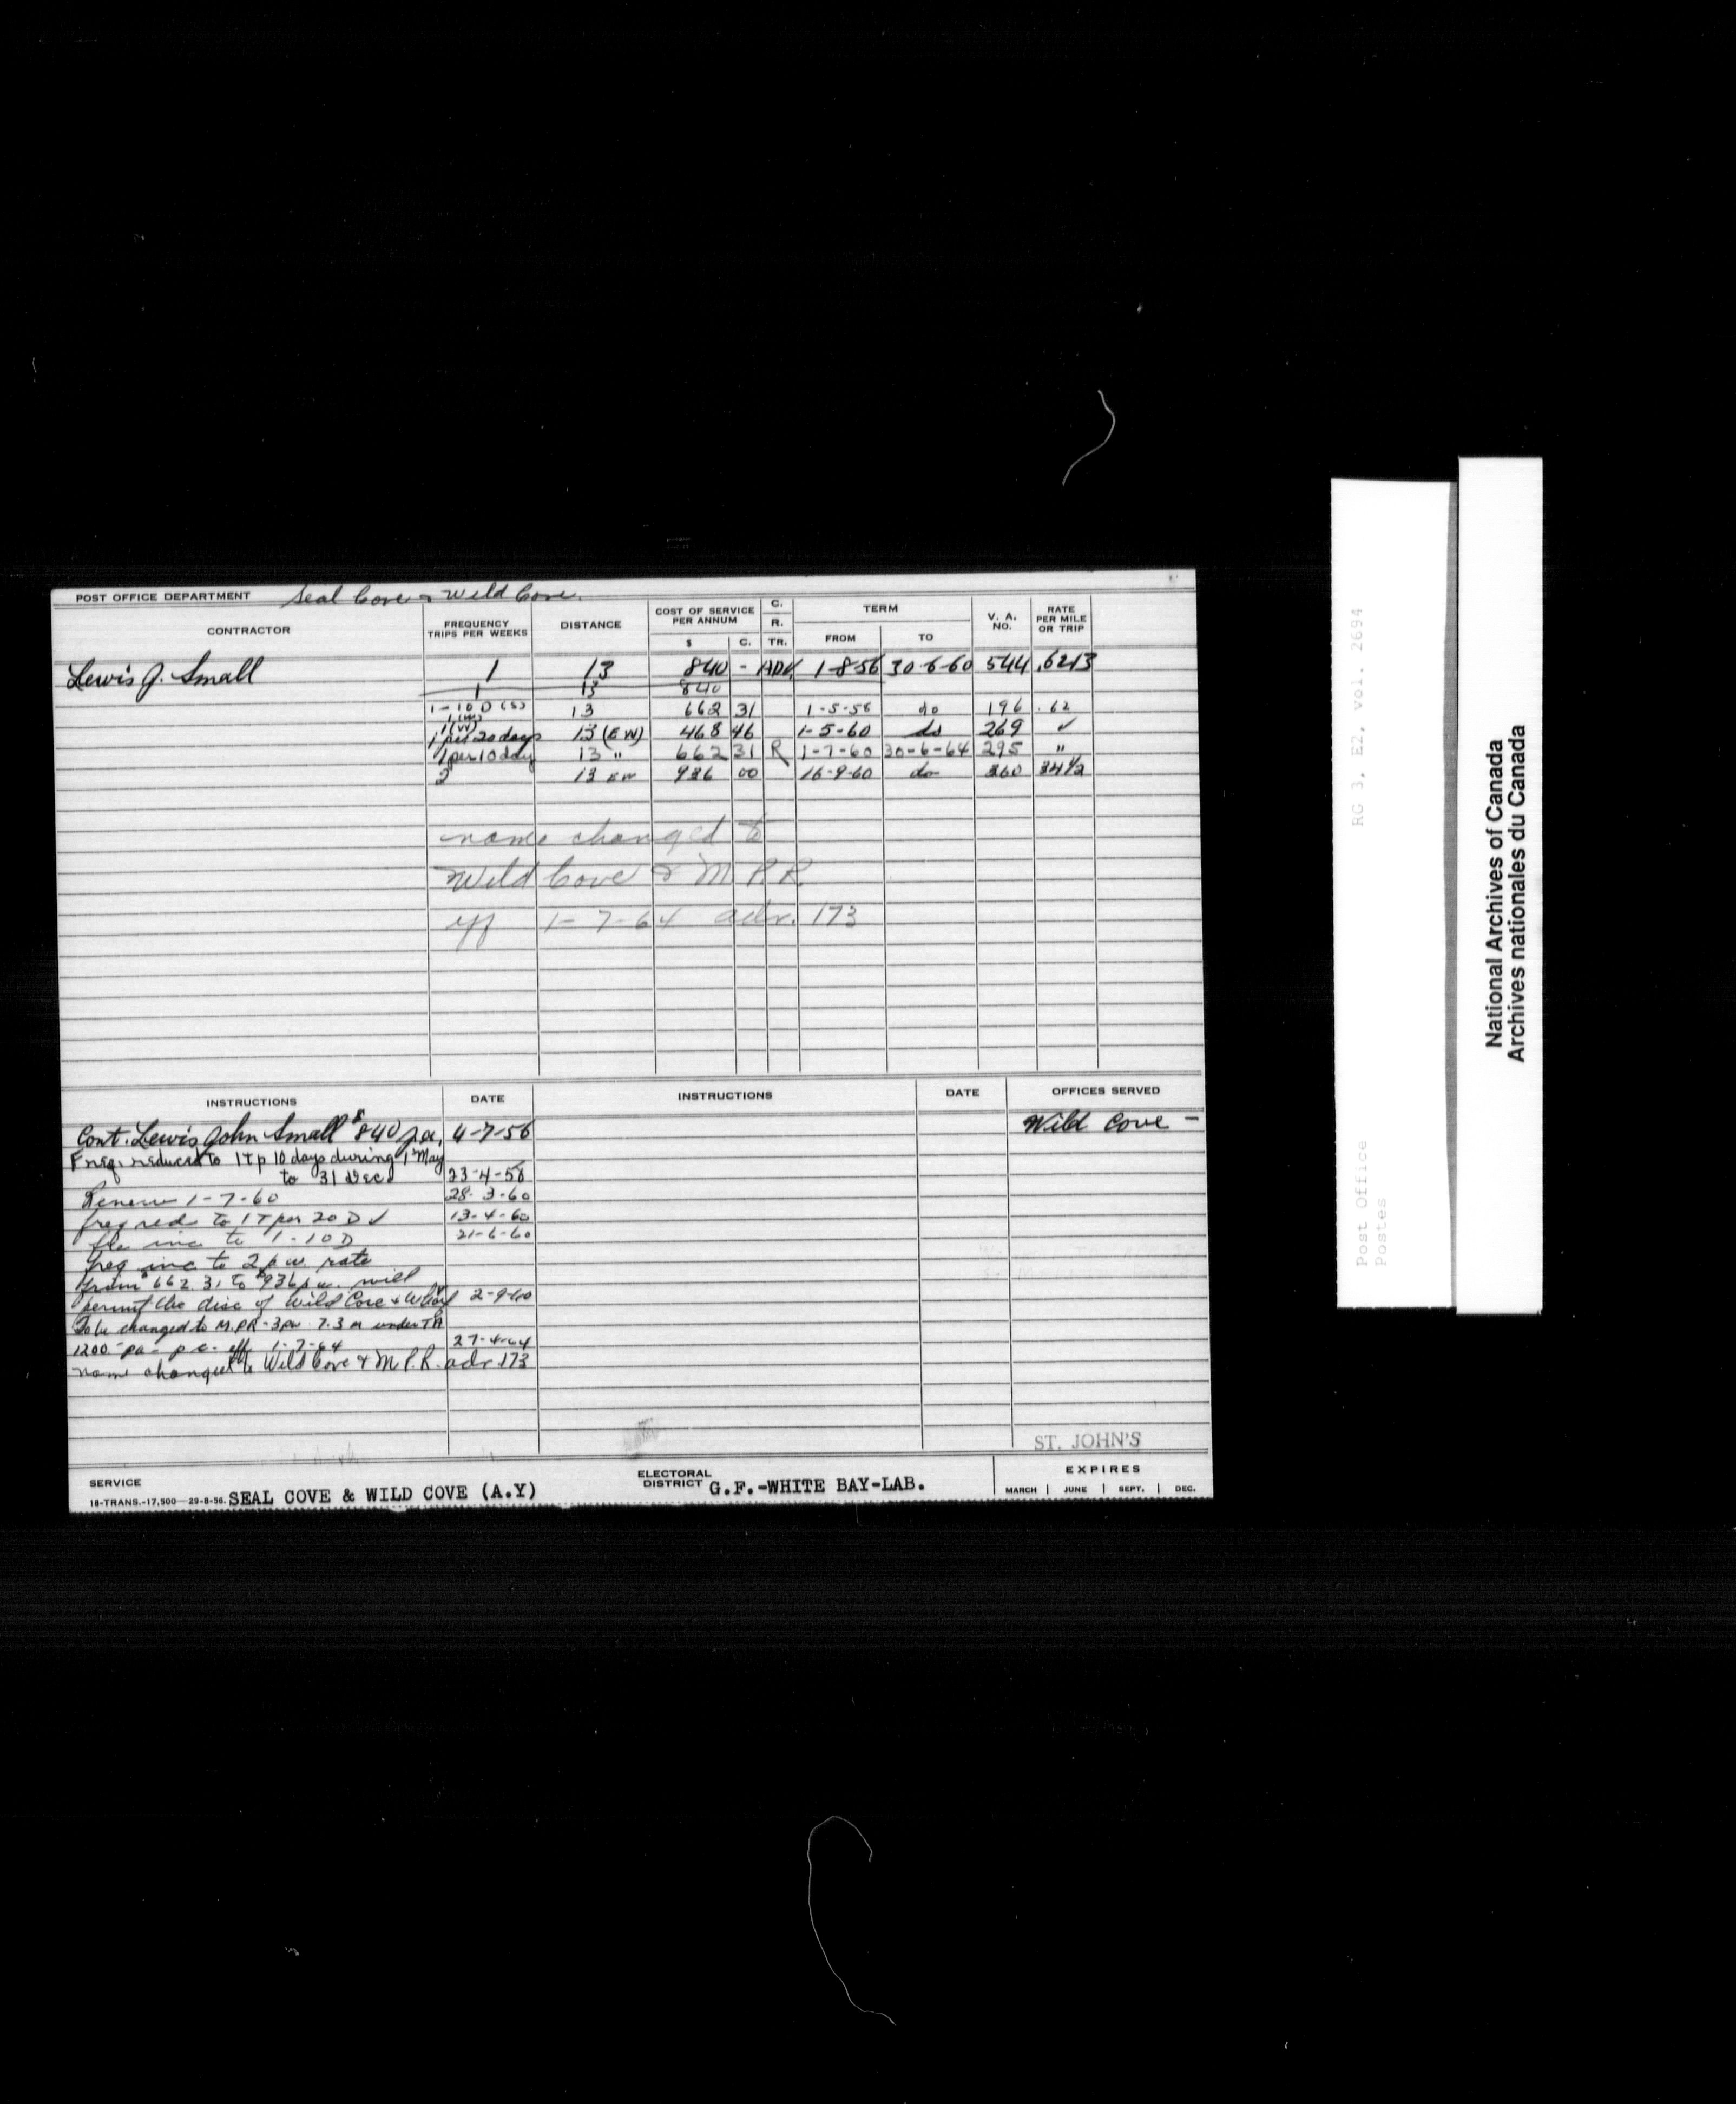 POST OFFICE DEPARTMENT Seal Cove & Wild Cove.
CONTRACTOR FREQUENCY TRIPS PER WEEKS DISTANCE COST OF SERVICE PER ANNUM $ C. C. R. TR. TERM FROM TO V. A. NO. RATE PER MILE OR TRIP
Lewis J. Small 1 13 840 - ADV. 1-8-56 30-6-60 544 .6213
1 13 840
1-10 D (S) 13 662 31 1-5-58 do 196 .62
1 (W)
1 per 20 days 13 (EW) 468 46 1-5-60 do 269 ✓
1 per 10 day 13 " 662 31 R 1-7-60 30-6-64 295 "
2 13 EW 936 00 16-9-60 do 360 34 1/2
name changed to
Wild Cove & M.P.R.
eff 1-7-64 adv. 173
INSTRUCTIONS DATE INSTRUCTIONS DATE OFFICES SERVED
Cont. Lewis John Small $840 p.a. 4-7-56 Wild Cove -
Freq. reduced to 1 T p 10 days during 1 May
to 31 Dec 23-4-58
Renew 1-7-60 28-3-60
freq red to 1 T per 20 D ✓ 13-4-60
inc to 1-10 D 21-6-60
freq inc to 2 p w. rate
from $662.31 to $936 p a. will
permit the disc of Wild Cove & Wharf 2-9-60
To be changed to M.P.R - 3pw 7.3 m under TA
1200 - pa - p.c. eff. 1-7-64 27-4-64
name changed to Wild Cove & M.P.R. adv 173
ST. JOHN'S
SERVICE
18-TRANS.-17,500—29-8-56. SEAL COVE & WILD COVE (A.Y)
ELECTORAL DISTRICT G.F.-WHITE BAY-LAB.
EXPIRES
MARCH | JUNE | SEPT. | DEC.
RG 3, E2, vol. 2694
Post Office
Postes
National Archives of Canada
Archives nationales du Canada